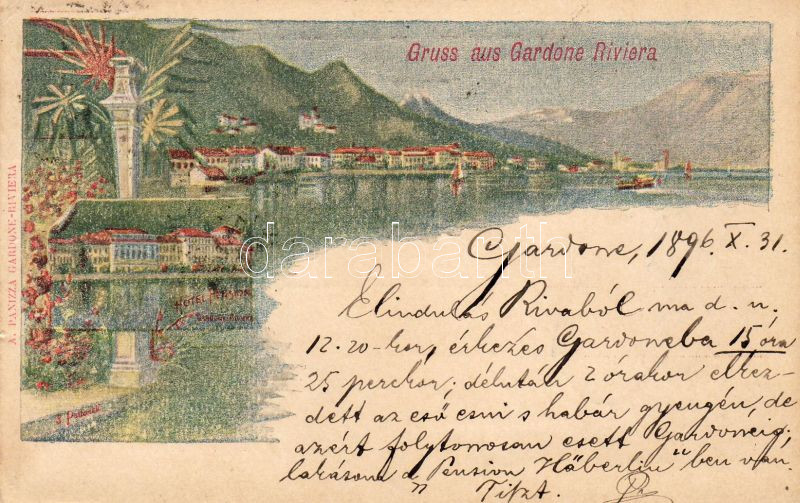 Gruss aus Gardone Riviera
A. PANIZZA GARDONE-RIVIERA
HOTEL PENSION
darabanth
Gardone, 1896. X. 31.
Elindulás Rivaból ma d. u.
12.20-kor, érkezés Gardoneba 15 óra
25 perckor; délután 2 órakor elkez-
dett az eső esni s habár gyengén, de
azért folytonosan esett Gardoneig;
lakásom a "Pension Häberlin" ben van.
Tiszt.